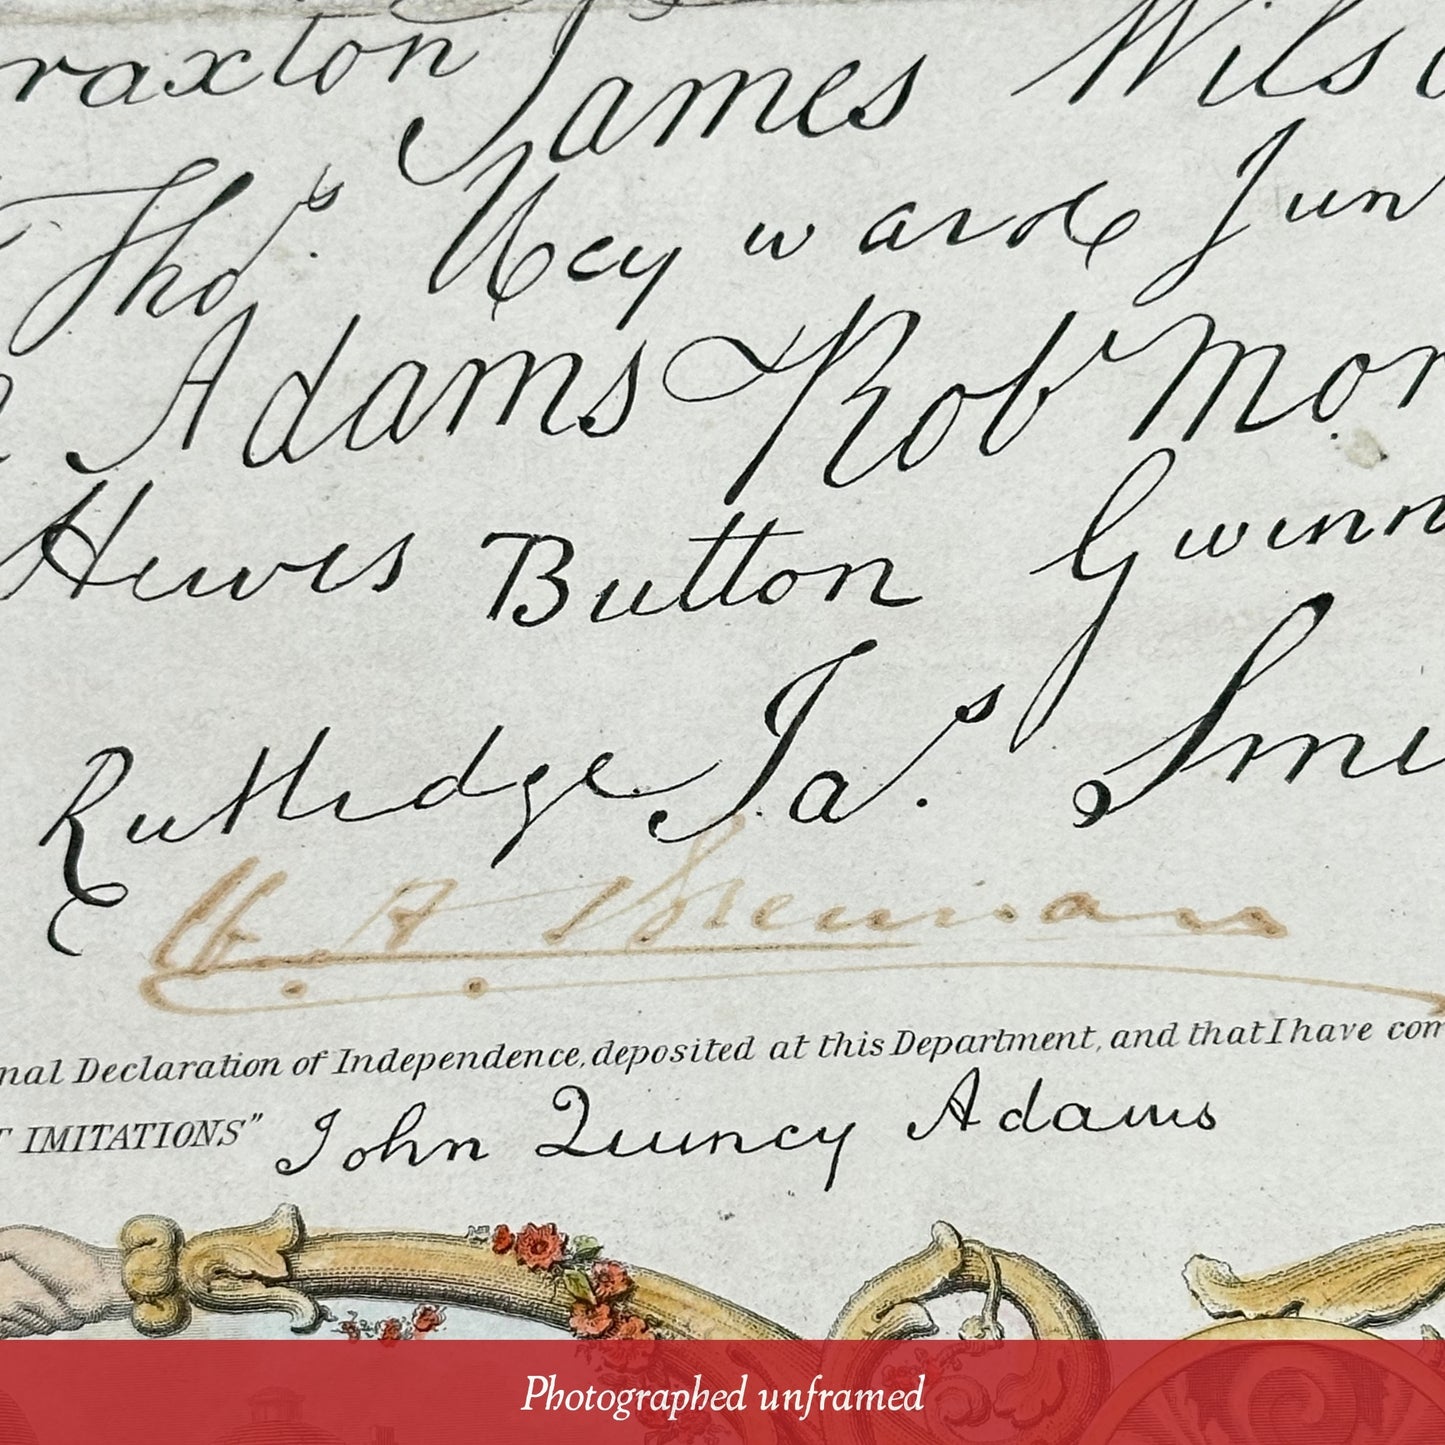 raxton James Wils
Thos. Heyward Jun
Adams Robt Mor
Hewes Button Gwinn
Rutledge Jas. Smi
nal Declaration of Independence, deposited at this Department, and that I have com
T IMITATIONS" John Quincy Adams
Photographed unframed